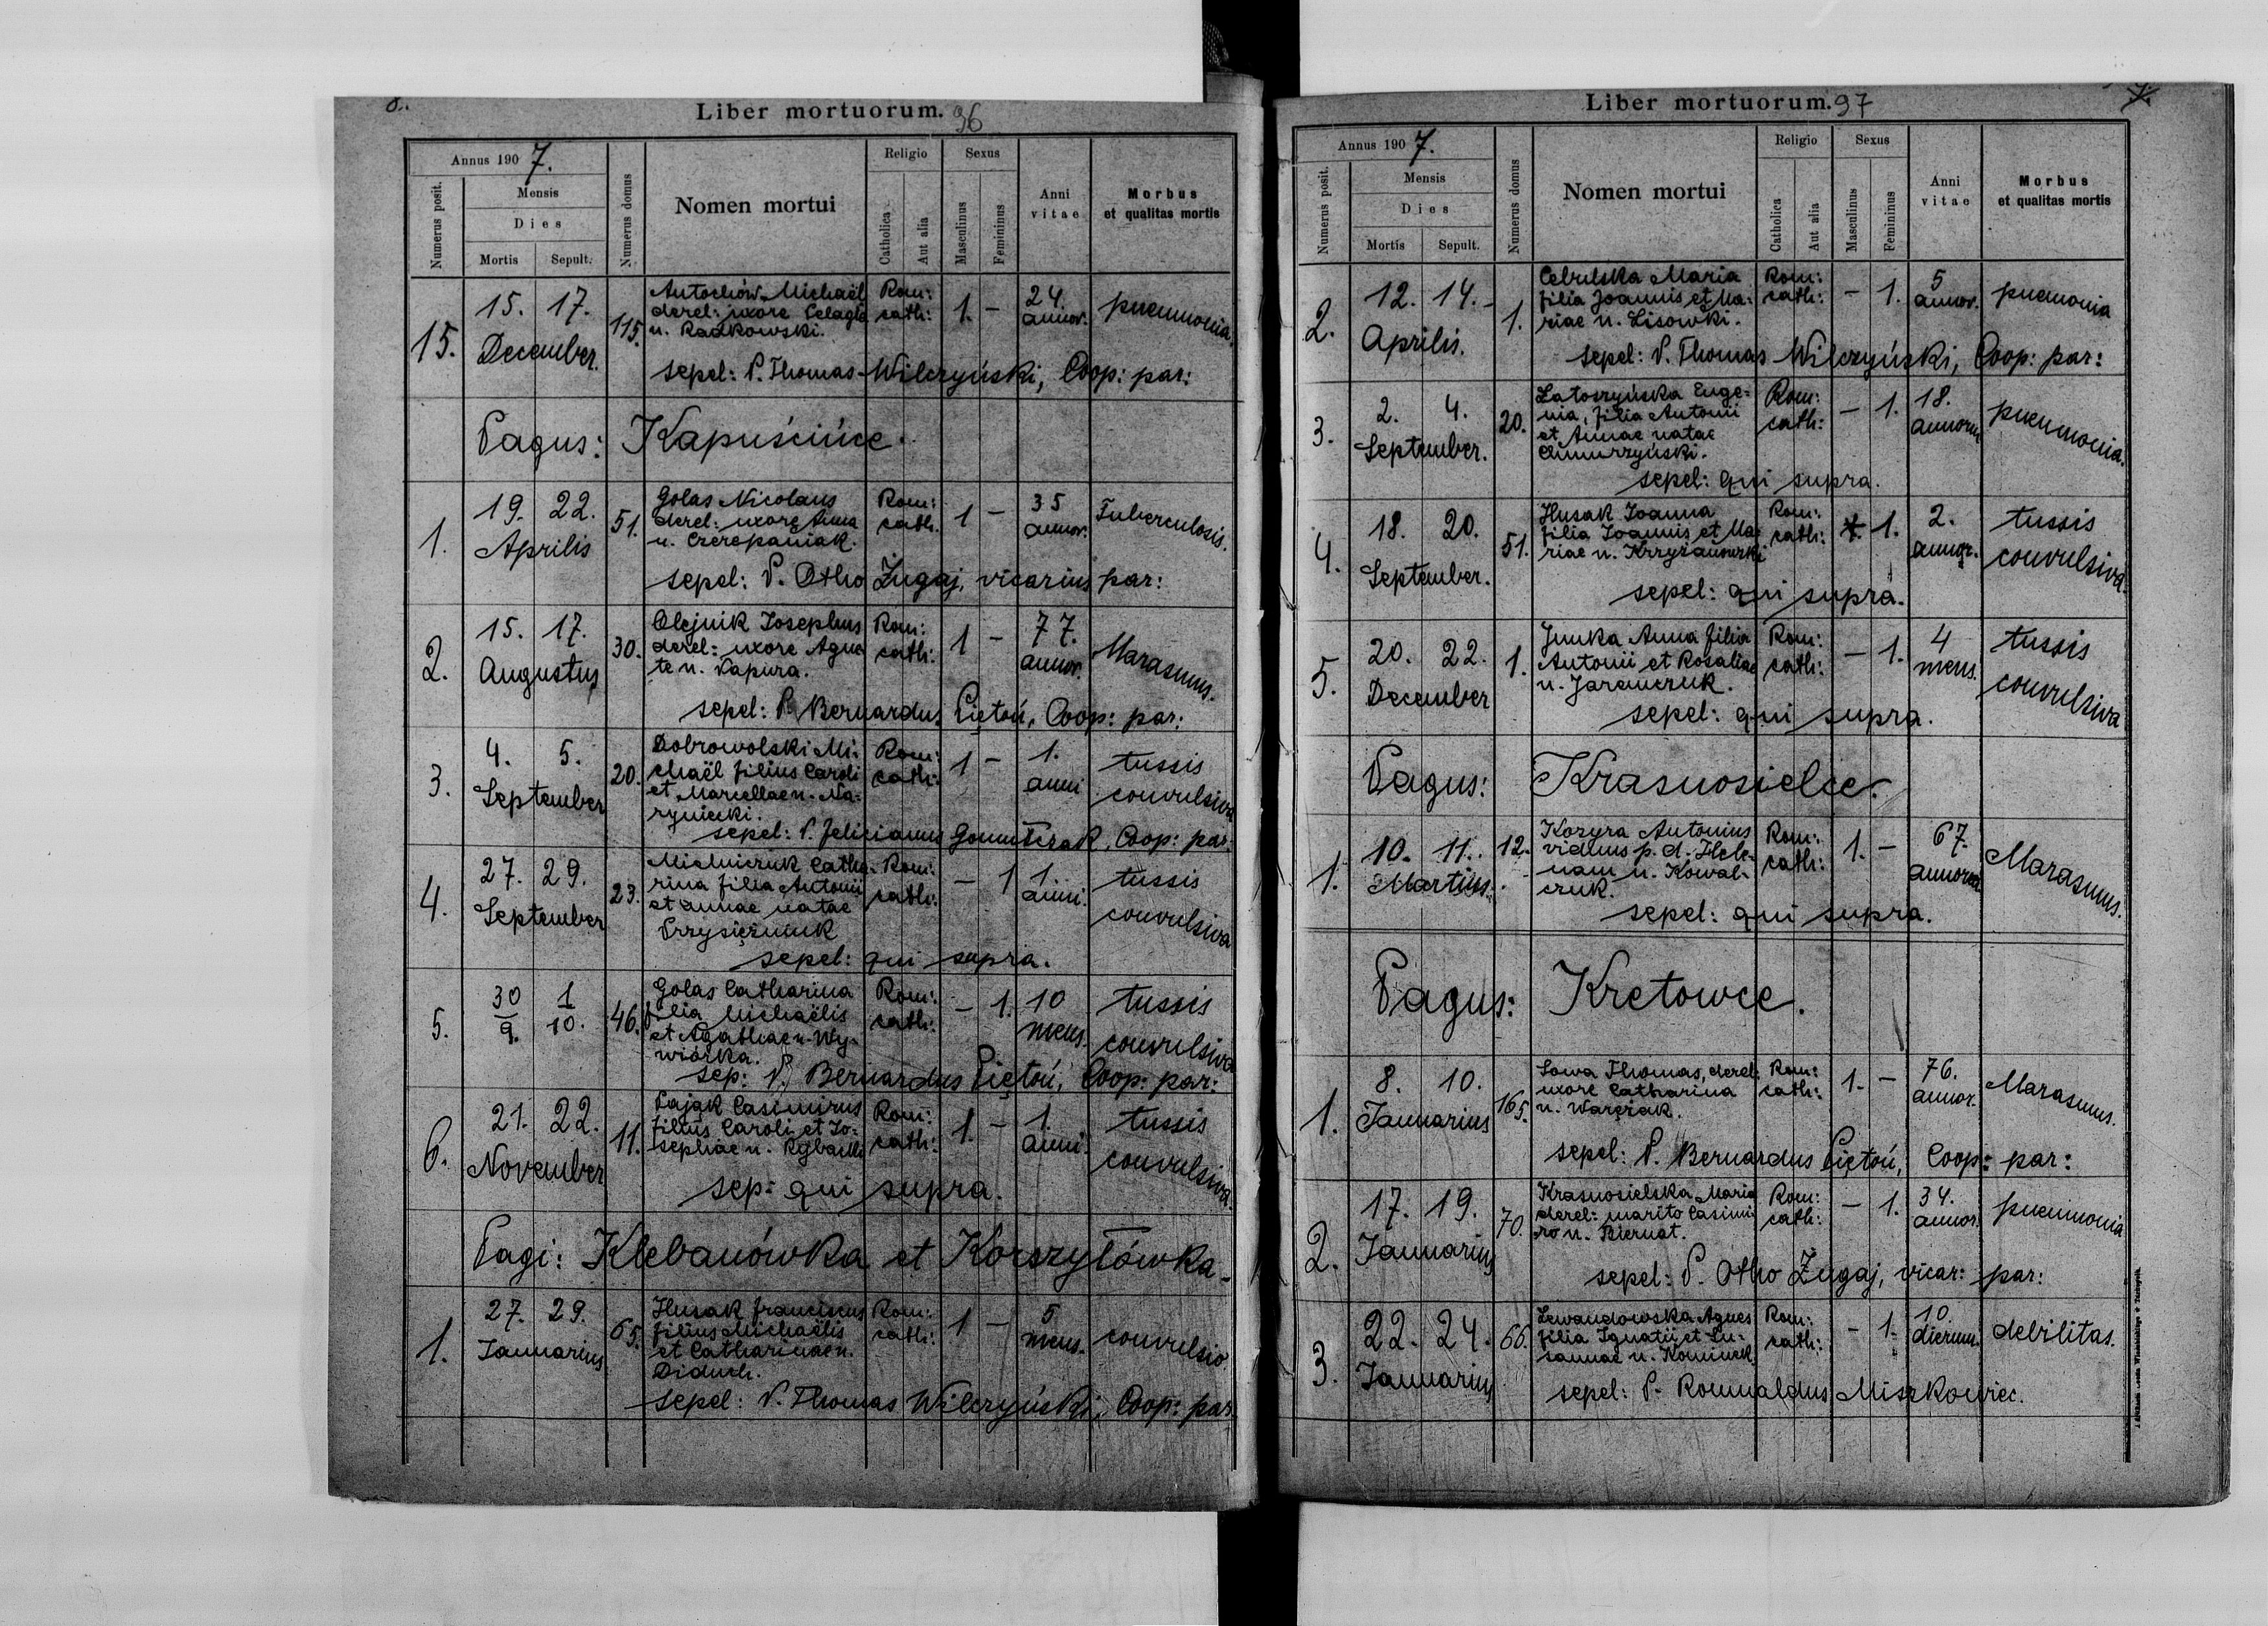 8.
Liber mortuorum. 96
Annus 1907.
Numerus posit.
Mensis
Dies
Mortis Sepult.
Numerus domus
Nomen mortui
Religio
Catholica
Aut alia
Sexus
Masculinus
Femininus
Anni vitae
Morbus et qualitas mortis
15. 15. 17. December. 115.
Antochów Michaël
derel: uxore Pelagia
n. Radkowski.
Rom: cath: 1. – 24. annor. pneumonia.
sepel: P. Thomas Wilczyński, Coop: par:
Pagus: Kapuścińce.
1. 19. 22. Aprilis 51.
Golas Nicolaus
derel: uxore Anna
n. Czerepaniak.
Rom: cath: 1 – 35 annor. Tuberculosis.
sepel: P. Otho Żugaj, vicarius par:
2. 15. 17. Augustus 30.
Olejnik Josephus
derel: uxore Agne
te n. Papura.
Rom: cath: 1 – 77. annor. Marasmus.
sepel: P. Bernardus Piętoń, Coop: par:
3. 4. 5. September 20.
Dobrowolski Mi-
chaël filius Caroli
et Marcellae n. Na-
ryniecki.
Rom: cath: 1 – 1. anni tussis convulsiva
sepel: P. Felicianus Coop: par:
4. 27. 29. September 23.
Mielniczuk Catha-
rina filia Antonii
et Annae natae
Przysiężniuk
Rom: cath: – 1 1. anni. tussis convulsiva
sepel: qui supra.
5. 30/9. 1/10. 46.
Golas Catharina
filia Michaëlis
et Agathae n. Wy-
wiórka.
Rom: cath: – 1. 10 mens. tussis convulsiva
sep: P. Bernardus Piętoń, Coop: par:
6. 21. 22. November 11.
Pająk Casimirus
filius Caroli et Jo-
sephae n.
Rom: cath: 1. – 1. anni. tussis convulsiva.
sep: qui supra.
Pagi: Klebanówka et Korszyłówka.
1. 27. 29. Januarius 65.
Husak Franciscus
filius Michaëlis
et Catharinae n.
Diduch.
Rom: cath: 1 – 5 mens. convulsio.
sepel: P. Thomas Wilczyński, Coop: par
Liber mortuorum. 97
Annus 1907.
Numerus posit.
Mensis
Dies
Mortis Sepult.
Numerus domus
Nomen mortui
Religio
Catholica
Aut alia
Sexus
Masculinus
Femininus
Anni vitae
Morbus et qualitas mortis
2. 12. 14. Aprilis. 1.
Cebulska Maria
filia Joannis et Ma-
riae n. Lisowki.
Rom: cath: – 1. 5 annor. pneumonia
sepel: P. Thomas Wilczyński, Coop: par:
3. 2. 4. September. 20.
Latoszyńska Euge-
nia, filia Antonii
et Annae natae
Chmurzyński.
Rom: cath: – 1. 18. annorum pneumonia.
sepel: qui supra.
4. 18. 20. September. 51.
Husak Joanna
filia Joannis et Ma-
riae n. Krzyżanowski
Rom: cath: 1. 2. annor. tussis convulsiva
sepel: qui supra.
5. 20. 22. December 1.
Junka Anna filia
Antonii et Rosaliae
n. Jaremczuk.
Rom: cath: – 1. 4 mens. tussis convulsiva
sepel: qui supra.
Pagus: Krasnosielce.
1. 10. 11. Martius. 12.
Kozyra Antonius
viduus p. d. Hele-
nam n. Kowal-
czuk.
Rom: cath: 1. – 67. annorum Marasmus.
sepel: qui supra.
Pagus: Kretowce.
1. 8. 10. Januarius 165.
Sowa Thomas, derel:
uxore Catharina
n. Waręzak.
Rom: cath: 1. – 76. annor. Marasmus.
sepel: P. Bernardus Piętoń, Coop: par:
2. 17. 19. Januarius 70.
Krasnosielska Maria
derel: marito Casimi-
ro n. Biernat.
Rom: cath: – 1. 34. annor. pneumonia
sepel: P. Otho Żugaj, vicar: par:
3. 22. 24. Januarius 66.
Lewandowska Agnes
filia Ignatii et Su-
sannae n. Kominek
Rom: cath: – 1. 10. dierum. debilitas.
sepel: P. Romualdus Miszkowiec.